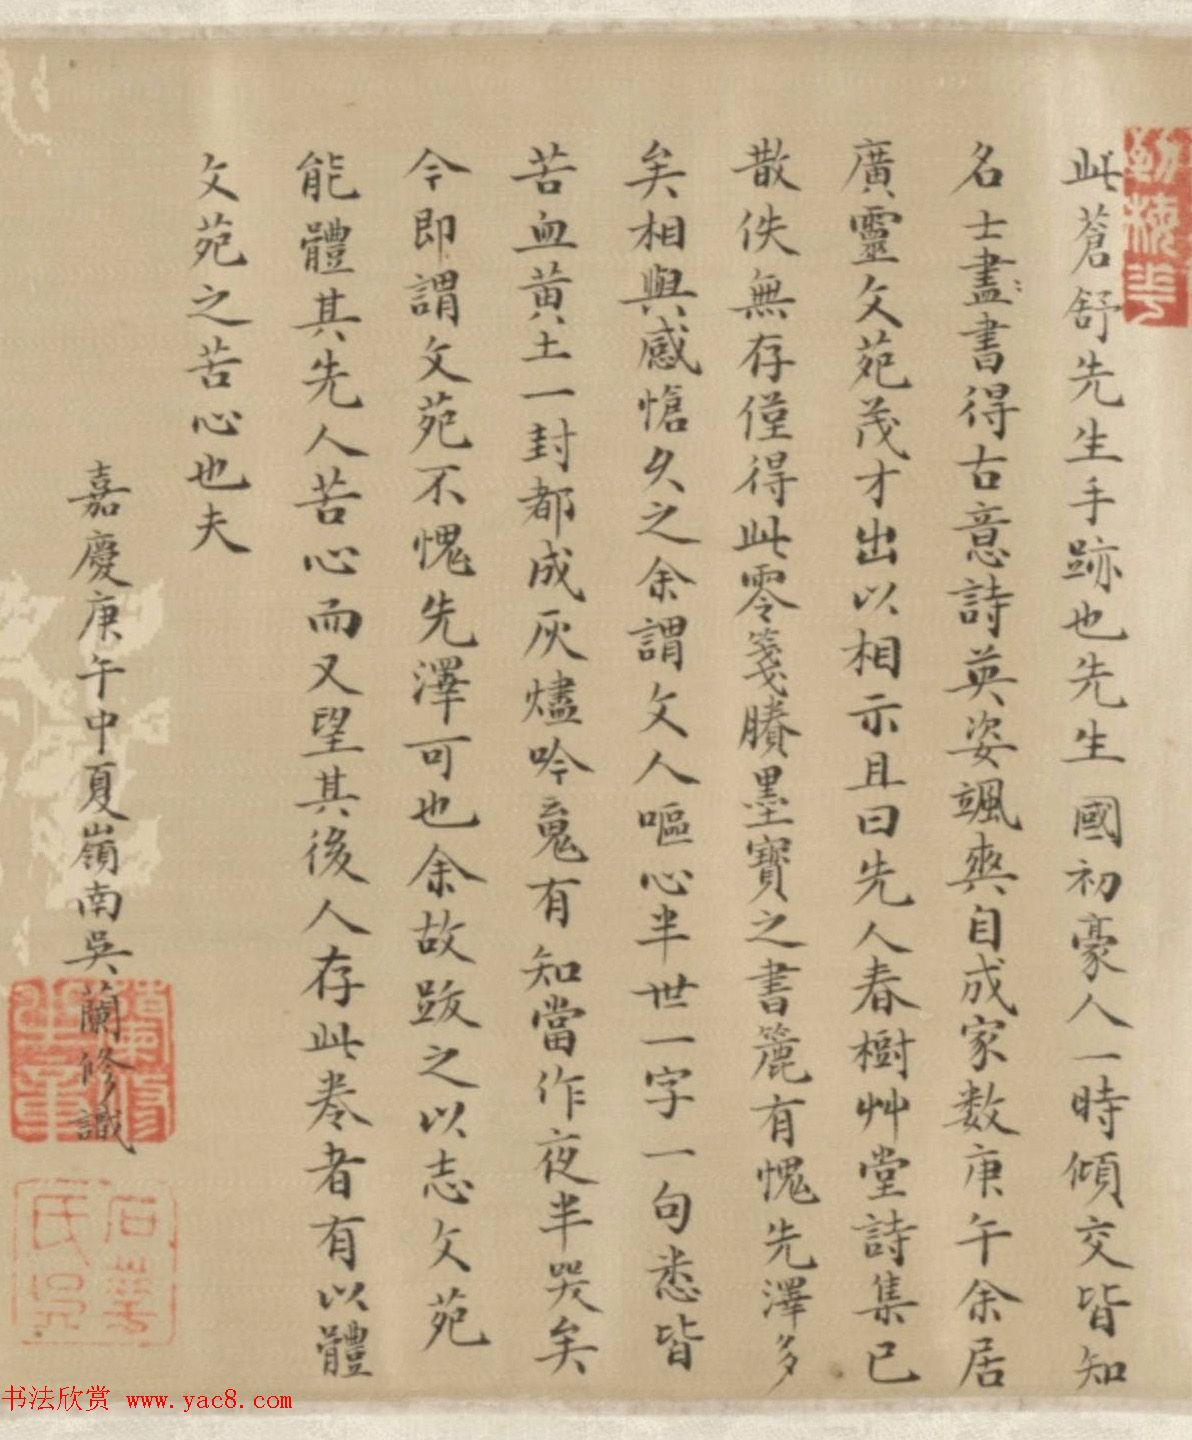 此蒼舒先生手跡也先生國初豪人一時傾交皆知
名士畫書得古意詩英姿颯爽自成家数庚午余居
廣靈文苑茂才出以相示且曰先人春樹艸堂詩集已
散佚無存僅得此零箋賸墨寶之書簏有愧先澤多
矣相與感愴久之余謂文人嘔心半世一字一句悉皆
苦血黄土一封都成灰燼吟䰟有知當作夜半哭矣
今即謂文苑不愧先澤可也余故跋之以志文苑
能體其先人苦心而又望其後人存此卷者有以體
文苑之苦心也夫
嘉慶庚午中夏嶺南吳蘭修識
石華
吳氏
书法欣赏 www.yac8.com